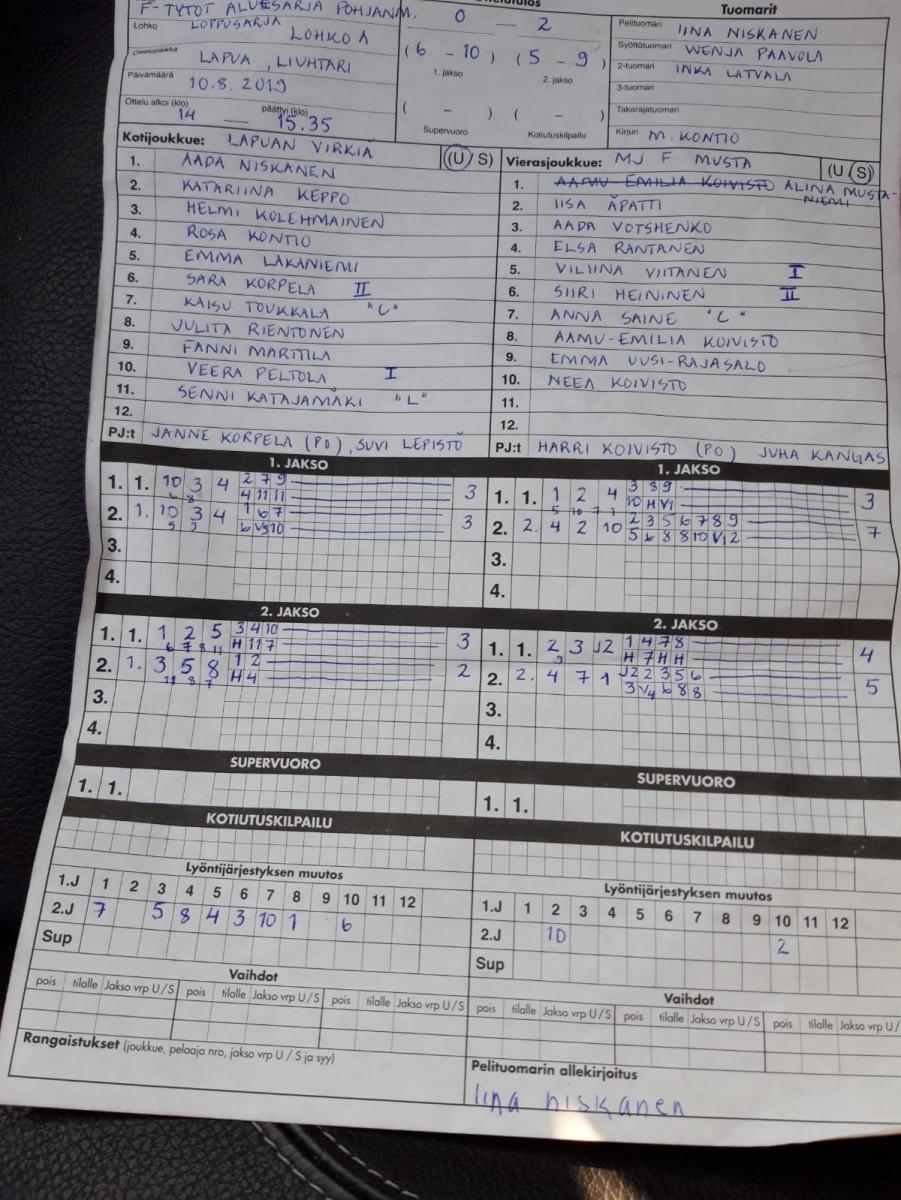 F-TYTÖT ALUESARJA POHJANM.
Lohko LOPPUSARJA
LOHKO A
Ottelupaikka LAPUA, LIUHTARI
Päivämäärä 10.8.2019
Ottelu alkoi (klo) 14 — päättyi (klo) 15.35
0 — 2
(6 - 10) (5 - 9)
1. jakso 2. jakso
( - ) ( - )
Supervuoro Kotiutuskilpailu
Tuomarit
Pelituomari IINA NISKANEN
Syöttötuomari WENJA PAAVOLA
2-tuomari INKA LATVALA
3-tuomari
Takarajatuomari
Kirjuri M. KONTIO
Kotijoukkue: LAPUAN VIRKIÄ (U/S)
1. AADA NISKANEN
2. KATARIINA KEPPO
3. HELMI KOLEHMAINEN
4. ROSA KONTIO
5. EMMA LAKANIEMI
6. SARA KORPELA II
7. KAISU TOUKKALA "C"
8. JULITA RIENTONEN
9. FANNI MARTTILA
10. VEERA PELTOLA I
11. SENNI KATAJAMÄKI "L"
12.
PJ:t JANNE KORPELA (PO), SUVI LEPISTÖ
Vierasjoukkue: MJ F MUSTA (U/S)
1. AAMU-EMILIA KOIVISTO ALINA MUSTA-
NIEMI
2. IISA ÄPATTI
3. AADA VOTSHENKO
4. ELSA RANTANEN
5. VILIINA VIITANEN I
6. SIIRI HEININEN II
7. ANNA SAINE "C"
8. AAMU-EMILIA KOIVISTO
9. EMMA UUSI-RAJASALO
10. NEEA KOIVISTO
11.
12.
PJ:t HARRI KOIVISTO (PO) JUHA KANGAS
1. JAKSO
1. 1. 10 3 4 2 7 9 3
6 8 4 11 11
2. 1. 10 3 4 1 6 7 3
5 3 6 V9 10
3.
4.
1. JAKSO
1. 1. 1 2 4 3 8 9 3
5 10 7 1 10 H V1
2. 2. 4 2 10 2 3 5 6 7 8 9 7
5 6 8 8 10 V1 2
3.
4.
2. JAKSO
1. 1. 1 2 5 3 4 10 3
6 7 8 11 H 11 7
2. 1. 3 5 8 1 2 2
11 8 7 H 4
3.
4.
2. JAKSO
1. 1. 2 3 J2 1 4 7 8 4
H 7 H H
2. 2. 4 7 1 J2 2 3 5 6 5
3 V4 6 8 8
3.
4.
SUPERVUORO
1. 1.
SUPERVUORO
1. 1.
KOTIUTUSKILPAILU
KOTIUTUSKILPAILU
Lyöntijärjestyksen muutos
1.J 1 2 3 4 5 6 7 8 9 10 11 12
2.J 7 5 8 4 3 10 1 6
Sup
Lyöntijärjestyksen muutos
1.J 1 2 3 4 5 6 7 8 9 10 11 12
2.J 10 2
Sup
Vaihdot
pois tilalle Jakso vrp U/S pois tilalle Jakso vrp U/S pois tilalle Jakso vrp U/S
Vaihdot
pois tilalle Jakso vrp U/S pois tilalle Jakso vrp U/S pois tilalle Jakso vrp U/
Rangaistukset (joukkue, pelaaja nro, jakso vrp U / S ja syy)
Pelituomarin allekirjoitus
Iina niskanen